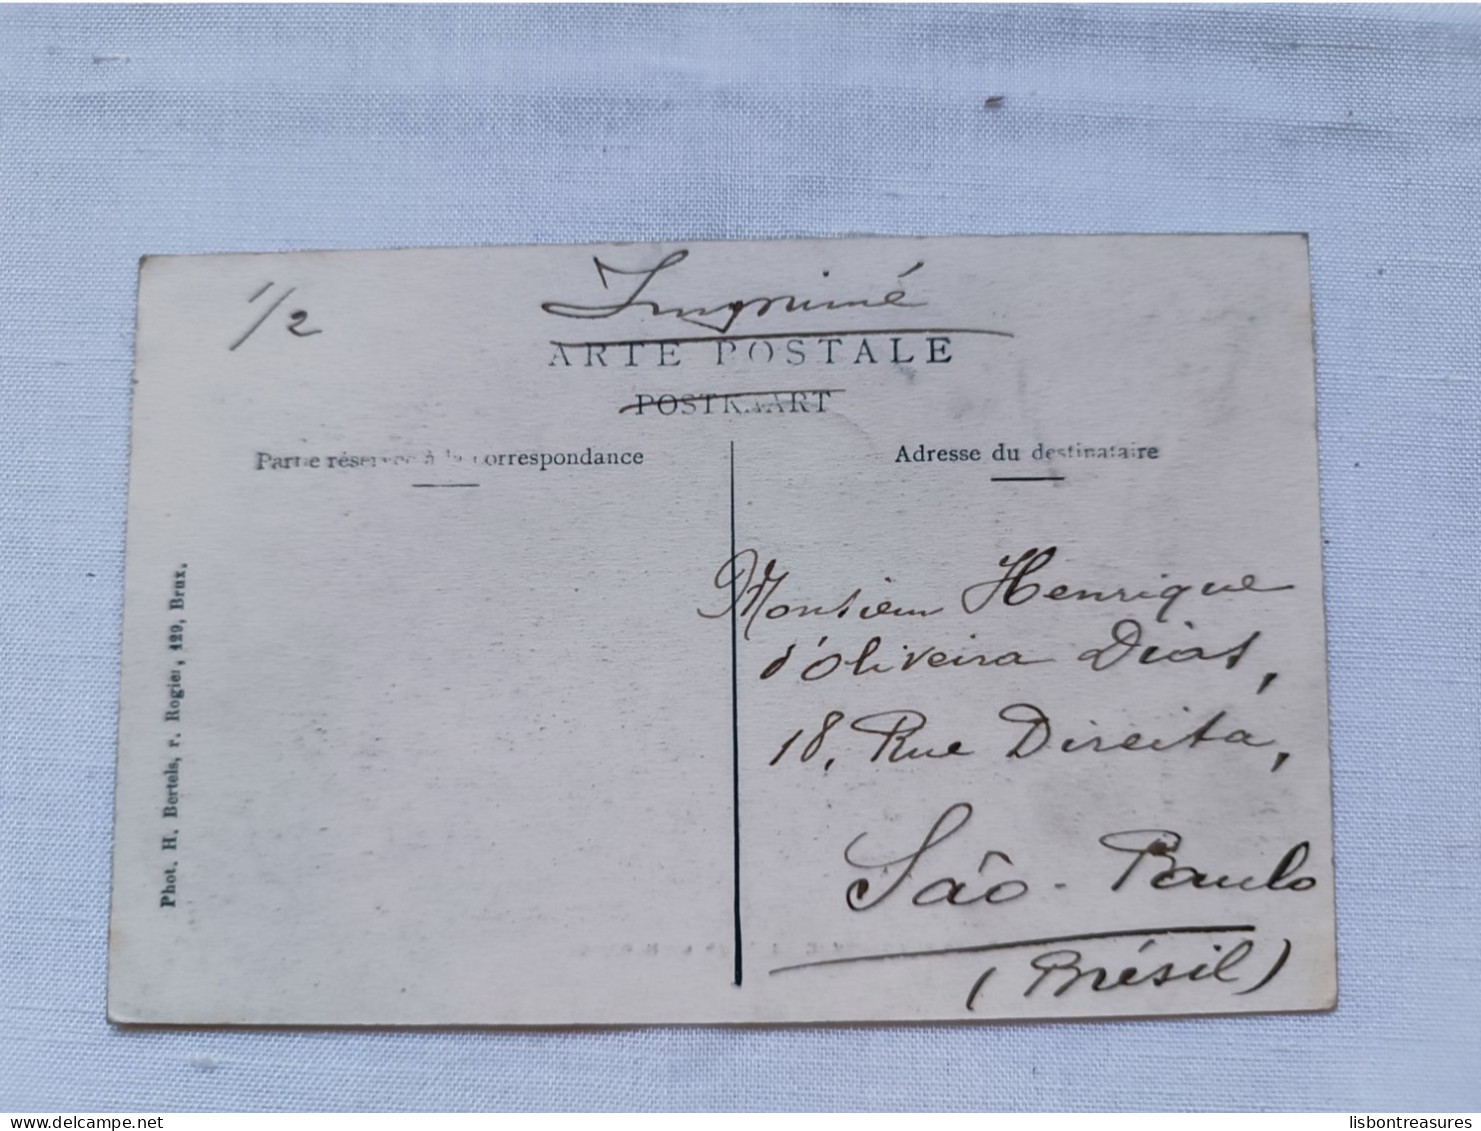 1/2
Imprimé
ARTE POSTALE
POSTKAART
Partie réservée à la correspondance
Adresse du destinataire
Phot. H. Bertels, r. Rogier, 129, Brux.
Monsieur Henrique
d'Oliveira Dias,
18, Rue Direita,
São-Paulo
(Brésil)
delcampe.net
lisbontreasures